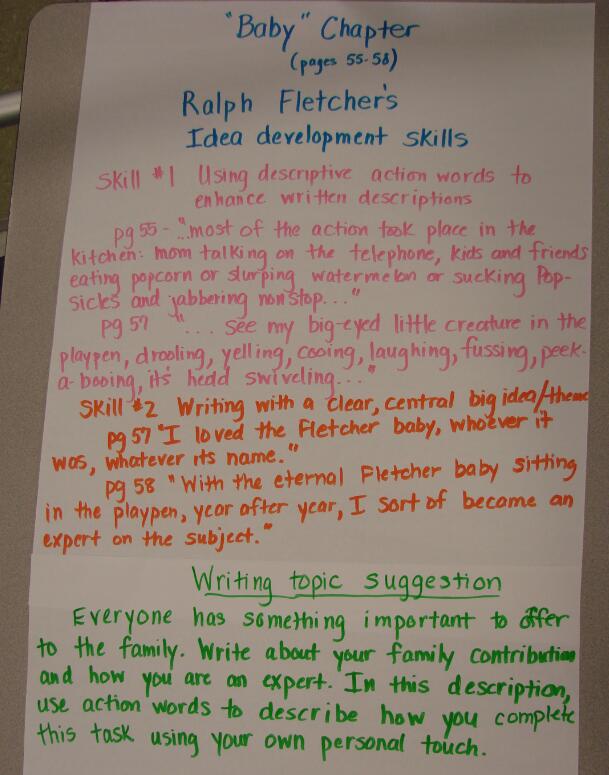 "Baby" Chapter
(pages 55-58)
Ralph Fletcher's
Idea development skills
Skill #1 Using descriptive action words to
enhance written descriptions
pg 55 - "...most of the action took place in the
kitchen: mom talking on the telephone, kids and friends
eating popcorn or slurping watermelon or sucking Pop-
sicles and jabbering nonstop..."
pg 57 "... see my big-eyed little creature in the
playpen, drooling, yelling, cooing, laughing, fussing, peek-
a-booing, its head swiveling..."
Skill #2 Writing with a clear, central big idea/theme
pg 57 "I loved the Fletcher baby, whoever it
was, whatever its name."
pg 58 "With the eternal Fletcher baby sitting
in the playpen, year after year, I sort of became an
expert on the subject."
Writing topic suggestion
Everyone has something important to offer
to the family. Write about your family contribution
and how you are an expert. In this description,
use action words to describe how you complete
this task using your own personal touch.